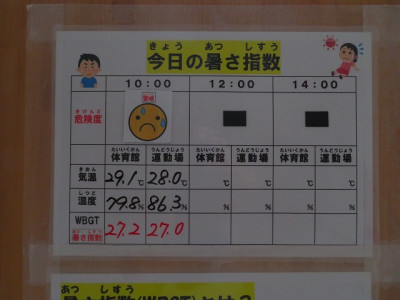 きょう あつ しすう
今日の暑さ指数
10:00 12:00 14:00
きけんど
危険度
警戒
たいいくかん うんどうじょう たいいくかん うんどうじょう たいいくかん うんどうじょう
体育館 運動場 体育館 運動場 体育館 運動場
きおん
気温 29.1℃ 28.0℃ ℃ ℃ ℃ ℃
しつど
湿度 79.8% 86.3% % % % %
WBGT
あつ しすう
暑さ指数 27.2 27.0
あつ しすう
暑さ指数(WBGT)とは?